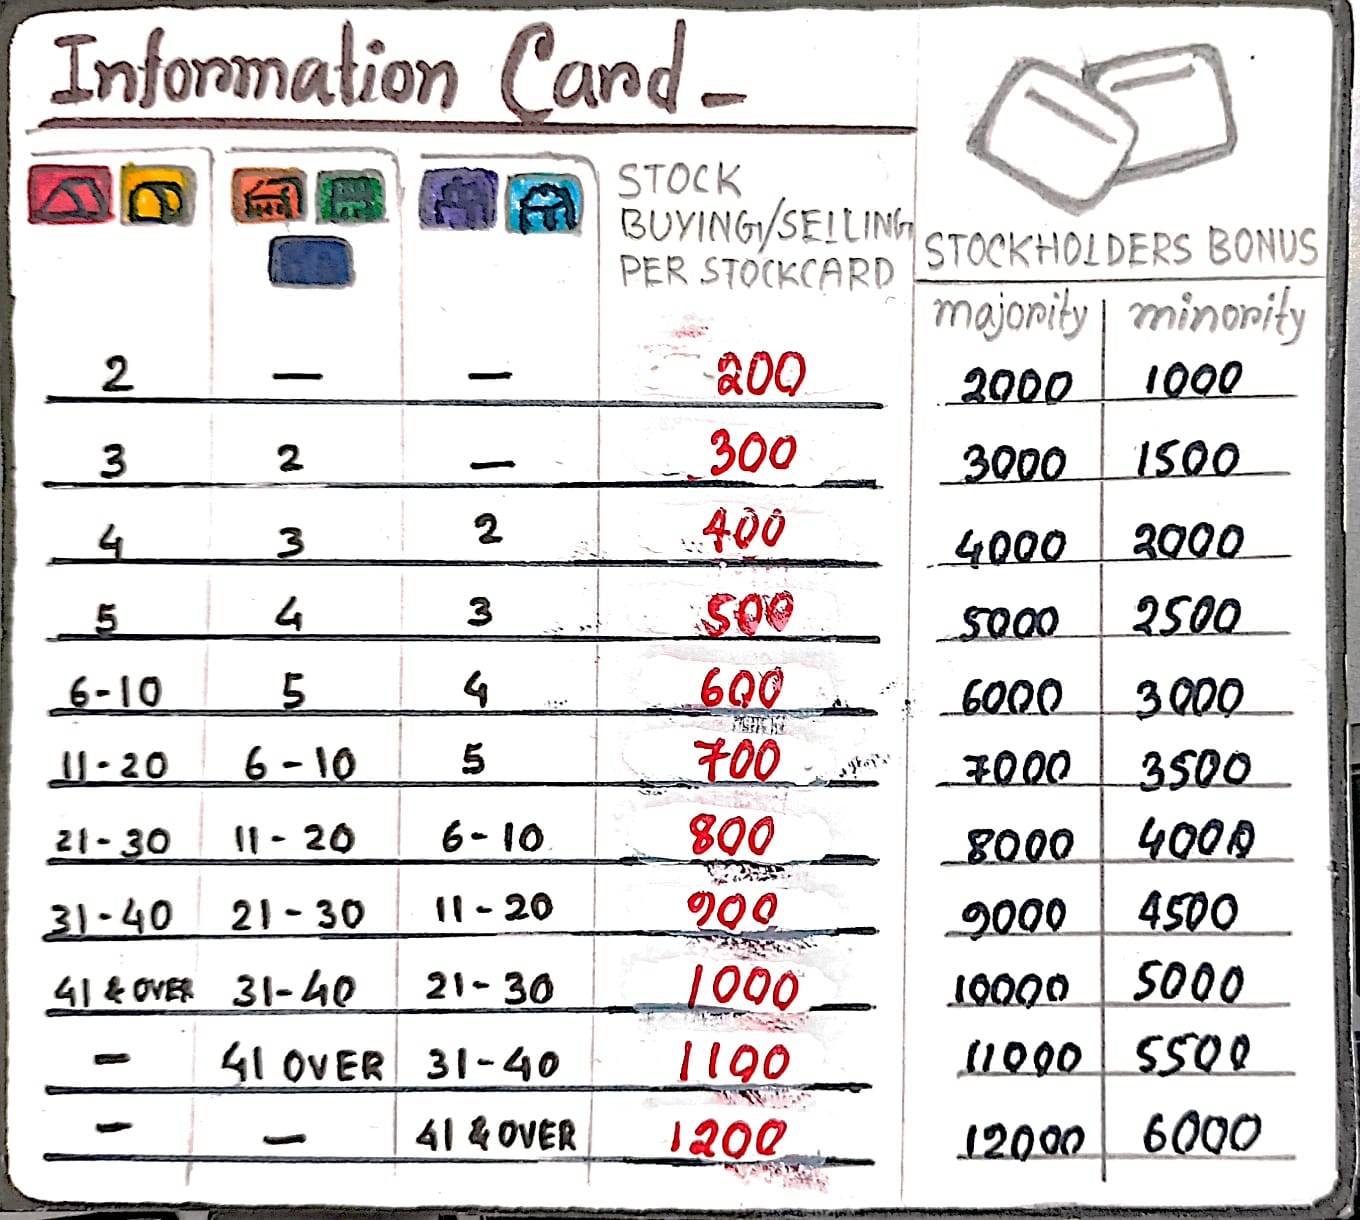 Information Card -
STOCK
BUYING/SELLING
PER STOCKCARD
STOCKHOLDERS BONUS
majority minority
2 — — 200 2000 1000
3 2 — 300 3000 1500
4 3 2 400 4000 2000
5 4 3 500 5000 2500
6-10 5 4 600 6000 3000
11-20 6-10 5 700 7000 3500
21-30 11-20 6-10 800 8000 4000
31-40 21-30 11-20 900 9000 4500
41 & OVER 31-40 21-30 1000 10000 5000
- 41 OVER 31-40 1100 11000 5500
- — 41 & OVER 1200 12000 6000